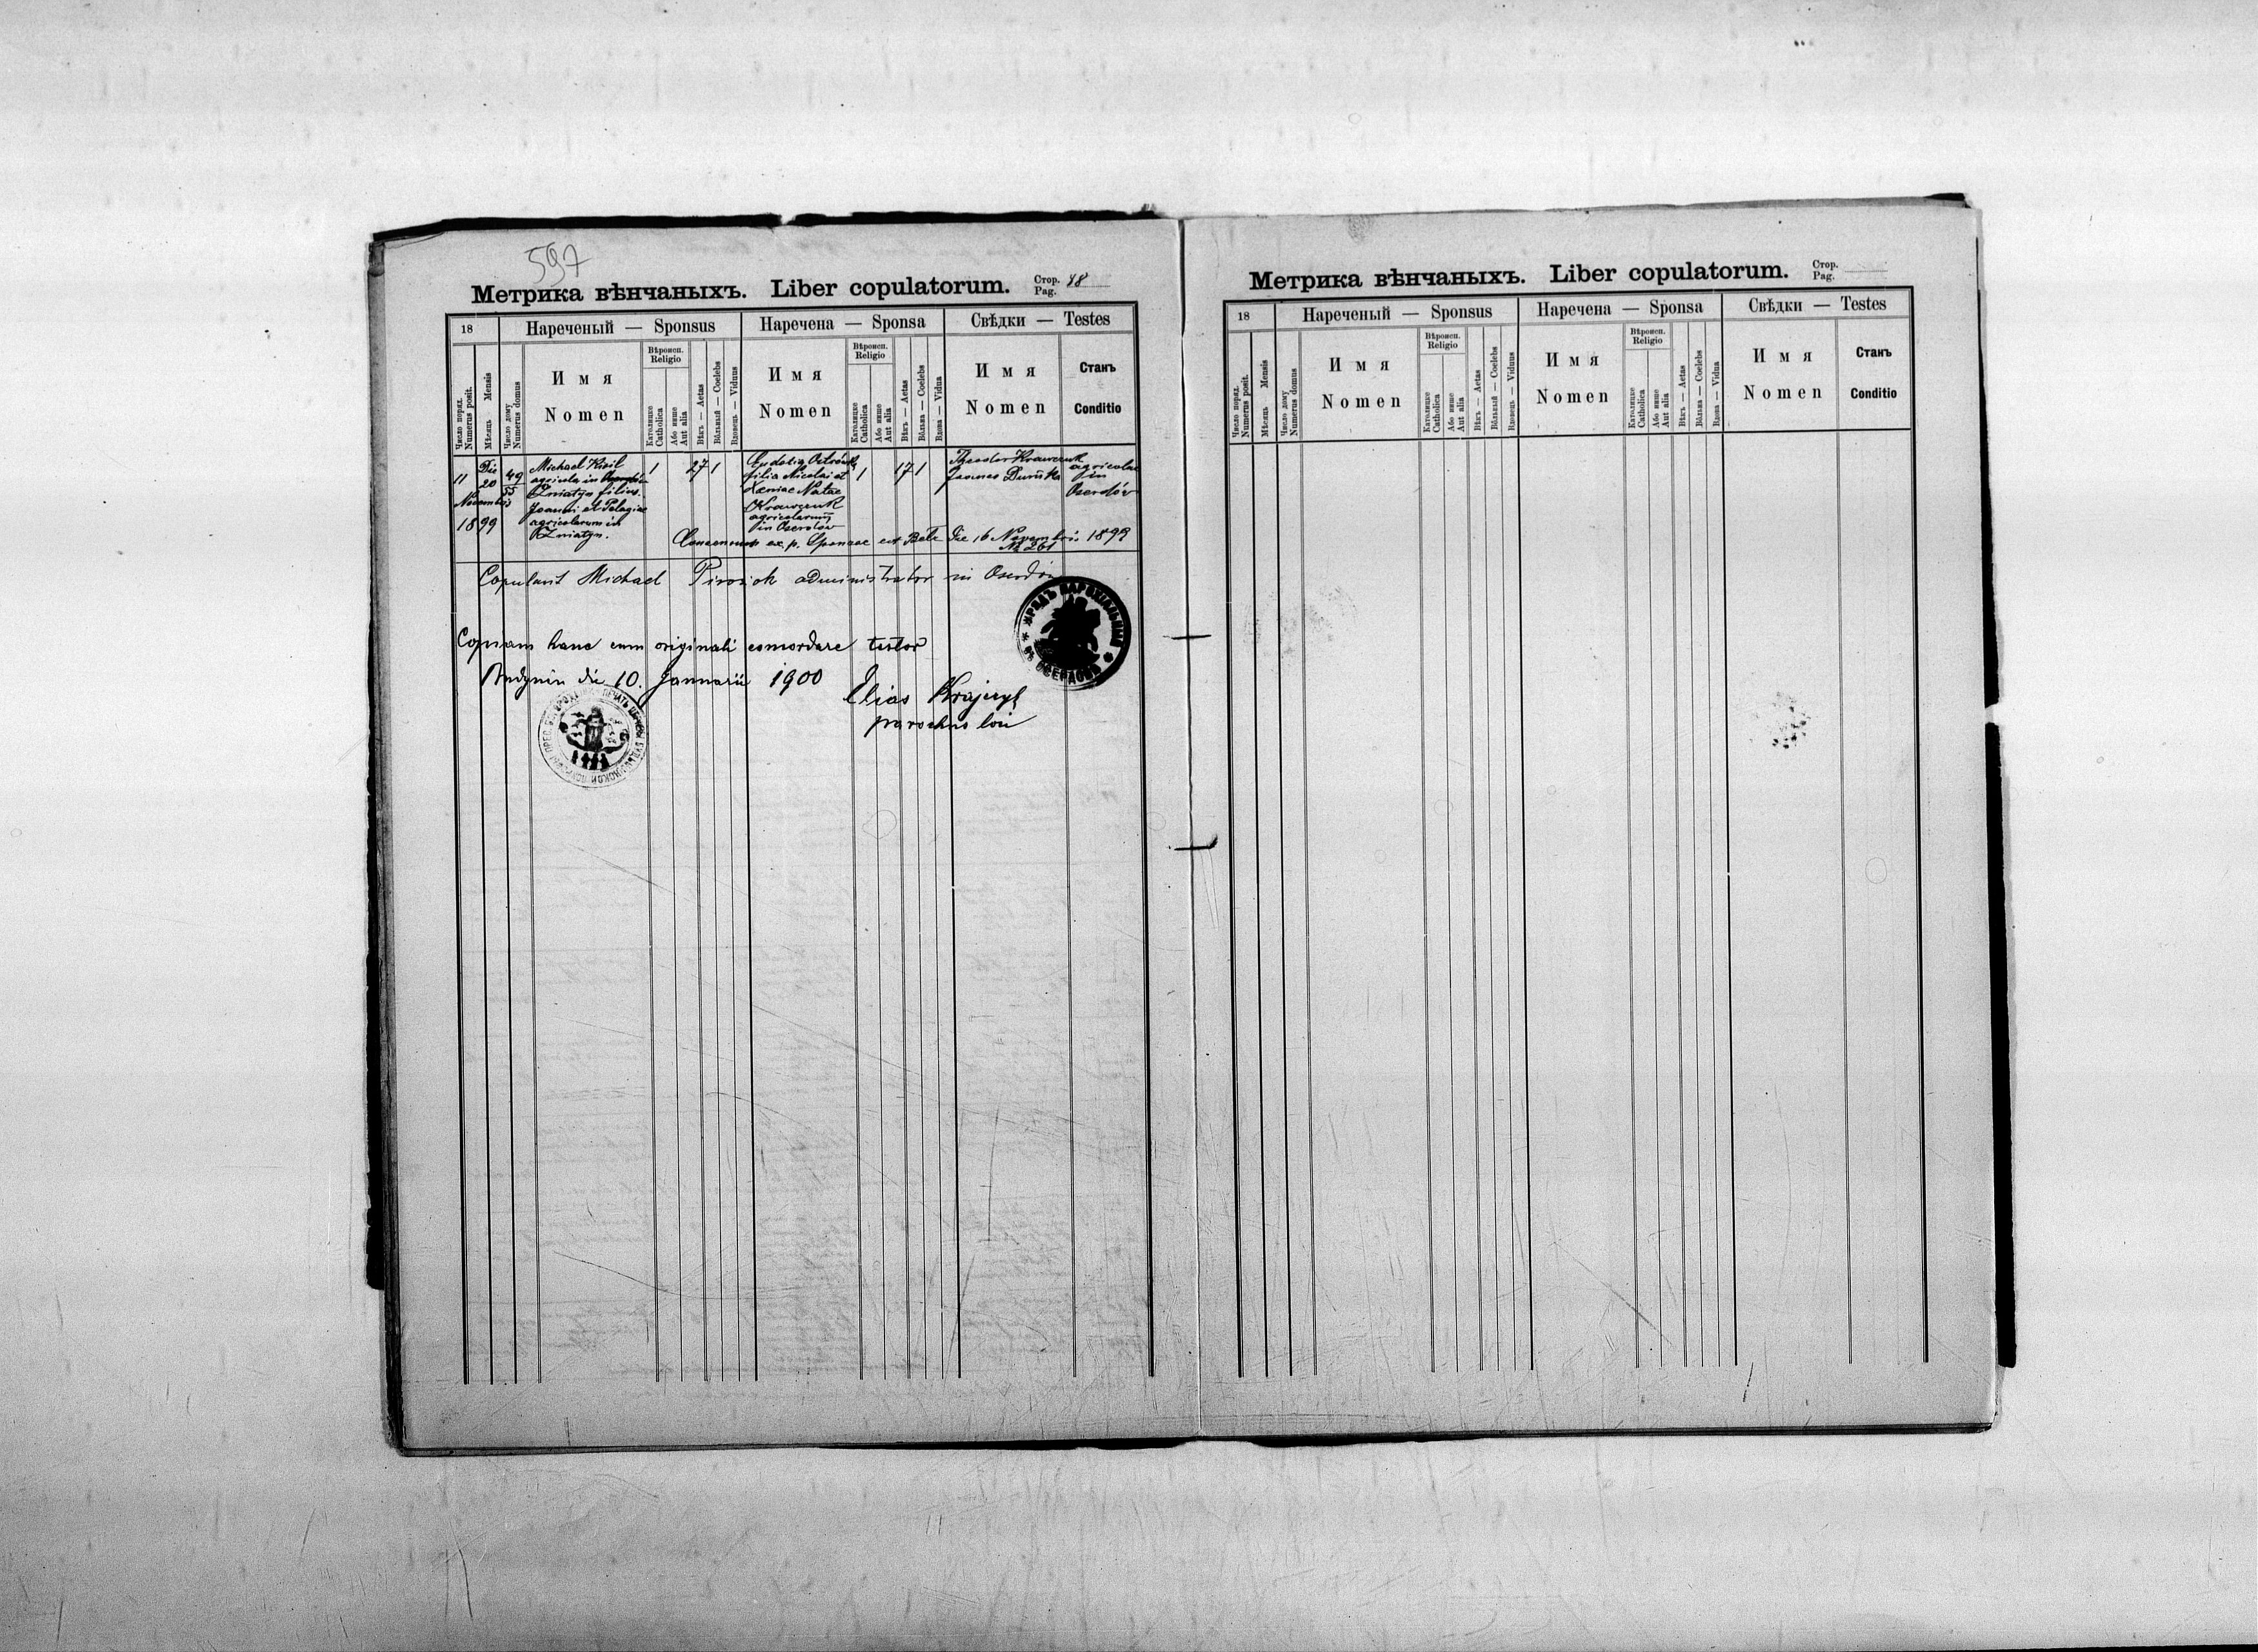 597
Метрика вѣнчаныхъ. Liber copulatorum. Стор. Pag. 48
18
Нареченый — Sponsus
Наречена — Sponsa
Свѣдки — Testes
Число поряд. Numerus posit.
Мѣсяць Mensis
Число дому Numerus domus
Имя Nomen
Вѣроисп. Religio
Католицке Catholica
Або инше Aut alia
Вѣкъ — Aetas
Вôльный — Coelebs
Вдовець — Viduus
Имя Nomen
Вѣроисп. Religio
Католицке Catholica
Або инше Aut alia
Вѣкъ — Aetas
Вôльна — Coelebs
Вдова — Vidua
Имя Nomen
Станъ Conditio
11
Die 20
Novembris
1899
49
55
Michael Kisil
agricola in
Zniatyn filius
Joanni et Pelagiae
agricolarum in
Zniatyn.
1
27
1
Eudokia
filia Nicolai et
Xeniae Natae
Krawczuk
agricolarum
in Oserdów
1
17
1
Theodor Krawczuk
Joannes
agricolae
in
Oserdów
Consensum ex p. Sponsae ex Bełz die 16 Novembris 1899
№ 261
Copulavit Michael administrator in Oserdów
Copiam hanc cum originali concordare testor
die 10. Januarii 1900
Elias Krajczyk
parochus loci
УРЯДЪ ПАРОХІАЛЬНЫЙ
въ ОСЕРДОВѢ
Метрика вѣнчаныхъ. Liber copulatorum. Стор. Pag.
18
Нареченый — Sponsus
Наречена — Sponsa
Свѣдки — Testes
Число поряд. Numerus posit.
Мѣсяць Mensis
Число дому Numerus domus
Имя Nomen
Вѣроисп. Religio
Католицке Catholica
Або инше Aut alia
Вѣкъ — Aetas
Вôльный — Coelebs
Вдовець — Viduus
Имя Nomen
Вѣроисп. Religio
Католицке Catholica
Або инше Aut alia
Вѣкъ — Aetas
Вôльна — Coelebs
Вдова — Vidua
Имя Nomen
Станъ Conditio